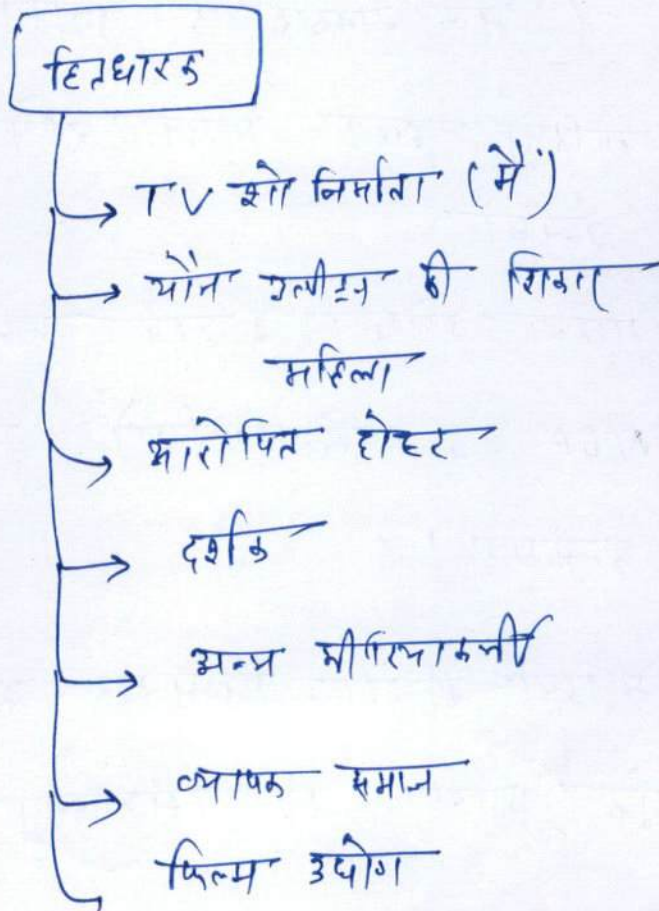 हितधारक
TV शो निर्माता (मैं)
यौन उत्पीड़न की शिकार
महिला
आरोपित होस्ट
दर्शक
अन्य मीडियाकर्मी
व्यापक समाज
फिल्म उद्योग